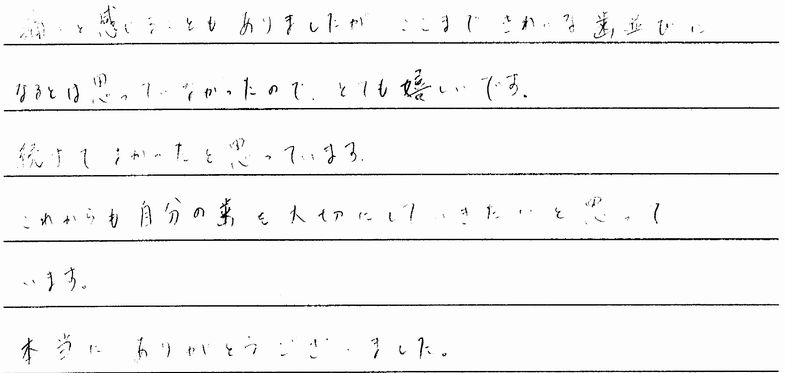 痛いと感じることもありましたが ここまできれいな歯並びに
なるとは思っていなかったので、とても嬉しいです。
続けてよかったと思っています。
これからも自分の歯を大切にしていきたいと思って
います。
本当に ありがとうございました。